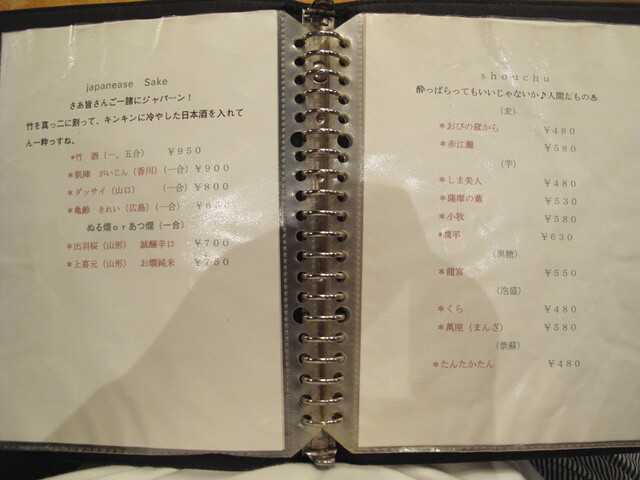 japanease Sake
さあ皆さんご一諸にジャパーン！
竹を真っ二に割って、キンキンに冷やした日本酒を入れて
ん一粋っすね。
＊竹 酒（一、五合） ￥９５０
＊凱陣 がいじん（香川）（一合）￥９００
＊ダッサイ（山口） （一合）￥８００
＊亀齢 きれい（広島）（一合）
ぬる燗ｏｒあつ燗（一合）
＊出羽桜（山形） 誠醸辛口 ￥７００
＊上喜元（山形） お燗純米 ￥７５０
shouchu
酔っぱらってもいいじゃないか♪人間だもの♨
（麦）
＊おびの蔵から ￥４８０
＊赤江灘 ￥５８０
（芋）
＊しま美人 ￥４８０
＊薩摩の薫 ￥５３０
＊小牧 ￥５８０
＊ 平 ￥６３０
（黒糖）
＊龍宮 ￥５５０
（泡盛）
＊くら ￥４８０
＊萬座（まんざ） ￥５８０
（紫蘇）
＊たんたかたん ￥４８０